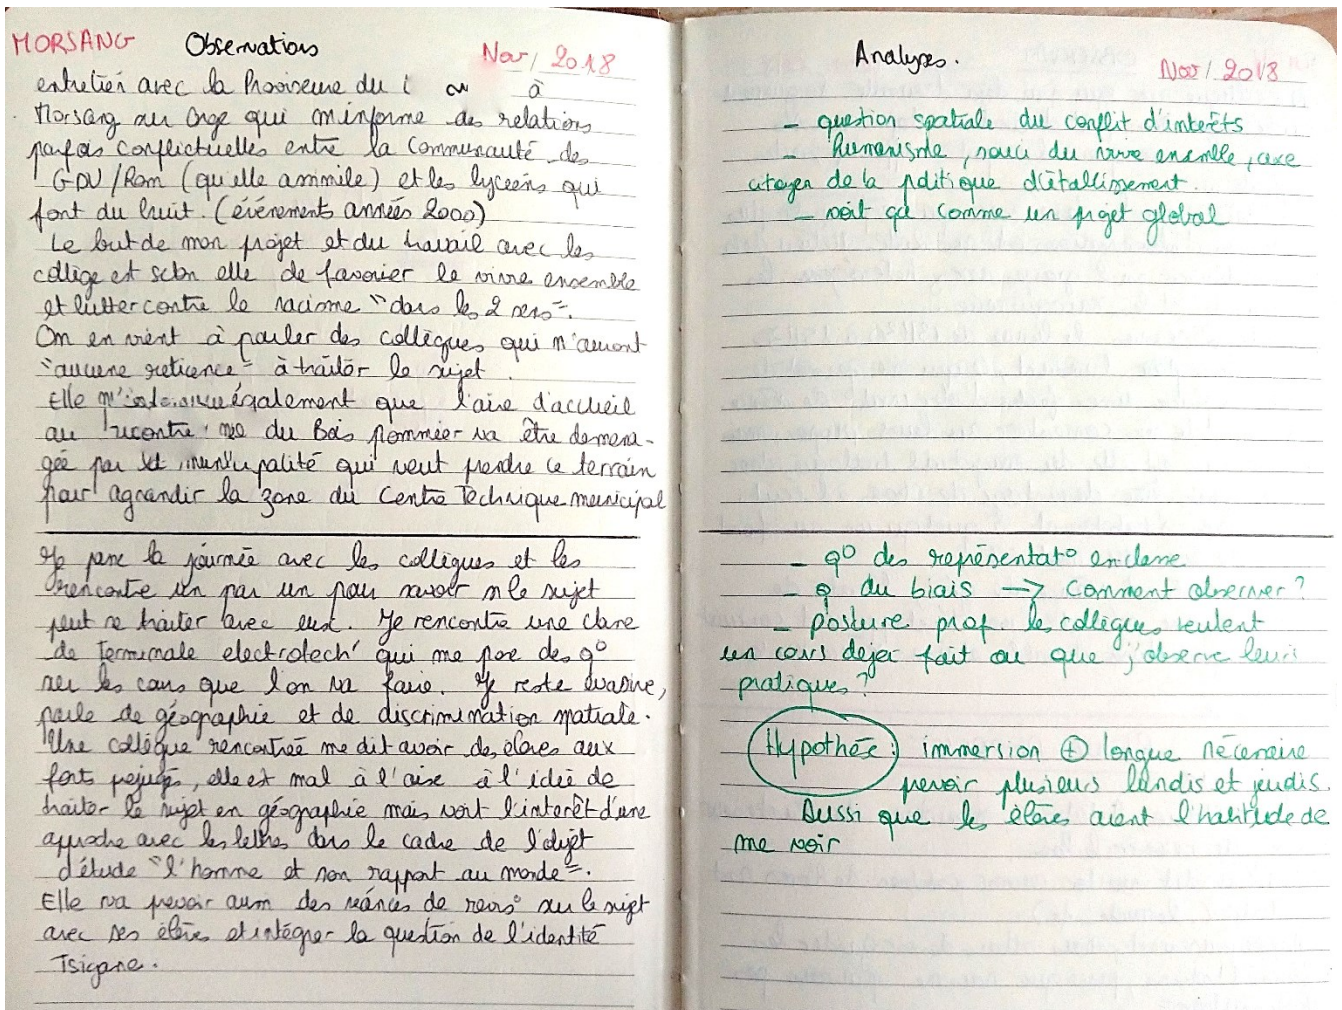 MORSANG Observations Nov/ 2018
entretien avec la Proviseure du à
Morsang sur Orge qui m'informe des relations
parfois conflictuelles entre la Communauté des
GDV/Rom (qu'elle assimile) et les lycéens qui
font du bruit. (événements années 2000)
Le but de mon projet et du travail avec les
collège est selon elle de favoriser le vivre ensemble
et lutter contre le racisme "dans les 2 sens".
On en vient à parler des collègues qui n'auront
"aucune reticence" à traiter le sujet.
Elle également que l'aire d'accueil
au du Bois pommier va être demena-
gée par municipalité qui veut prendre ce terrain
pour agrandir la zone du Centre Technique municipal
Je passe la journée avec les collègues et les
rencontre un par un pour savoir si le sujet
peut se traiter avec eux. Je rencontre une classe
de Terminale electrotech' qui me pose des q°
sur les cours que l'on va faire. Je reste evasive,
parle de géographie et de discrimination spatiale.
Une collègue rencontrée me dit avoir des élèves aux
forts prejugés, elle est mal à l'aise à l'idée de
traiter le sujet en géographie mais voit l'interêt d'une
approche avec les lettres dans le cadre de l'objet
d'étude "l'homme et son rapport au monde".
Elle va prevoir aussi des séances de revis° sur le sujet
avec ses élèves et intégrer la question de l'identité
Tsigane.
Analyses. Nov/ 2018
- question spatiale du conflit d'interêts
- humanisme, souci du vivre ensemble, axe
citoyen de la politique d'établissement.
- voit ça comme un projet global
- q° des représentat° en classe
- q du biais → Comment observer ?
- posture prof. les collègues veulent
un cours dejà fait ou que j'observe leurs
pratiques ?
Hypothèse : immersion ⊕ longue nécessaire
prevoir plusieurs lundis et jeudis.
Aussi que les élèves aient l'habitude de
me voir